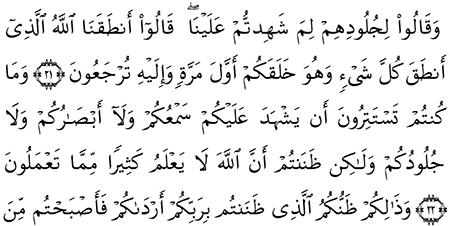 وَقَالُوا۟ لِجُلُودِهِمْ لِمَ شَهِدتُّمْ عَلَيْنَا ۖ قَالُوٓا۟ أَنطَقَنَا ٱللَّهُ ٱلَّذِىٓ
أَنطَقَ كُلَّ شَىْءٍ وَهُوَ خَلَقَكُمْ أَوَّلَ مَرَّةٍ وَإِلَيْهِ تُرْجَعُونَ ﴿٢١﴾ وَمَا
كُنتُمْ تَسْتَتِرُونَ أَن يَشْهَدَ عَلَيْكُمْ سَمْعُكُمْ وَلَآ أَبْصَٰرُكُمْ وَلَا
جُلُودُكُمْ وَلَٰكِن ظَنَنتُمْ أَنَّ ٱللَّهَ لَا يَعْلَمُ كَثِيرًا مِّمَّا تَعْمَلُونَ
﴿٢٢﴾ وَذَٰلِكُمْ ظَنُّكُمُ ٱلَّذِى ظَنَنتُم بِرَبِّكُمْ أَرْدَىٰكُمْ فَأَصْبَحْتُم مِّنَ